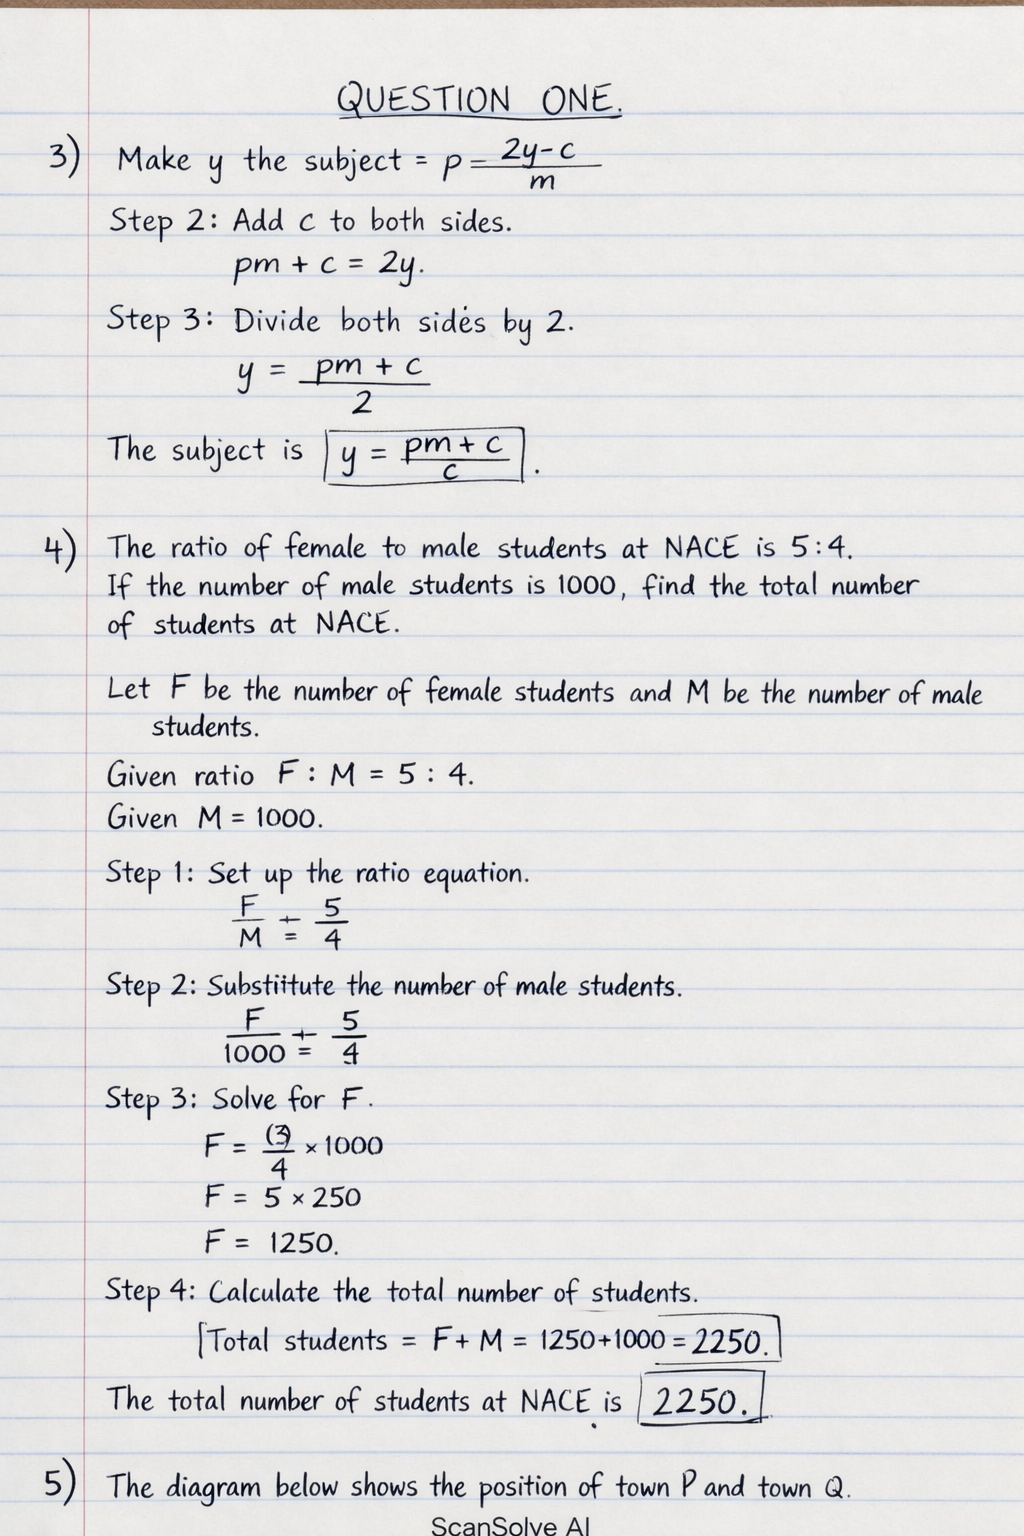 QUESTION ONE.
3) Make y the subject = p = 2y-c / m
Step 2: Add c to both sides.
pm + c = 2y.
Step 3: Divide both sides by 2.
y = pm + c / 2
The subject is y = pm + c / c .
4) The ratio of female to male students at NACE is 5:4.
If the number of male students is 1000, find the total number
of students at NACE.
Let F be the number of female students and M be the number of male
students.
Given ratio F : M = 5 : 4.
Given M = 1000.
Step 1: Set up the ratio equation.
F/M ÷= 5/4
Step 2: Substiitute the number of male students.
F/1000 ÷= 5/4
Step 3: Solve for F.
F = (3)/4 × 1000
F = 5 × 250
F = 1250.
Step 4: Calculate the total number of students.
Total students = F + M = 1250+1000 = 2250.
The total number of students at NACE is 2250.
5) The diagram below shows the position of town P and town Q.
ScanSolve AI